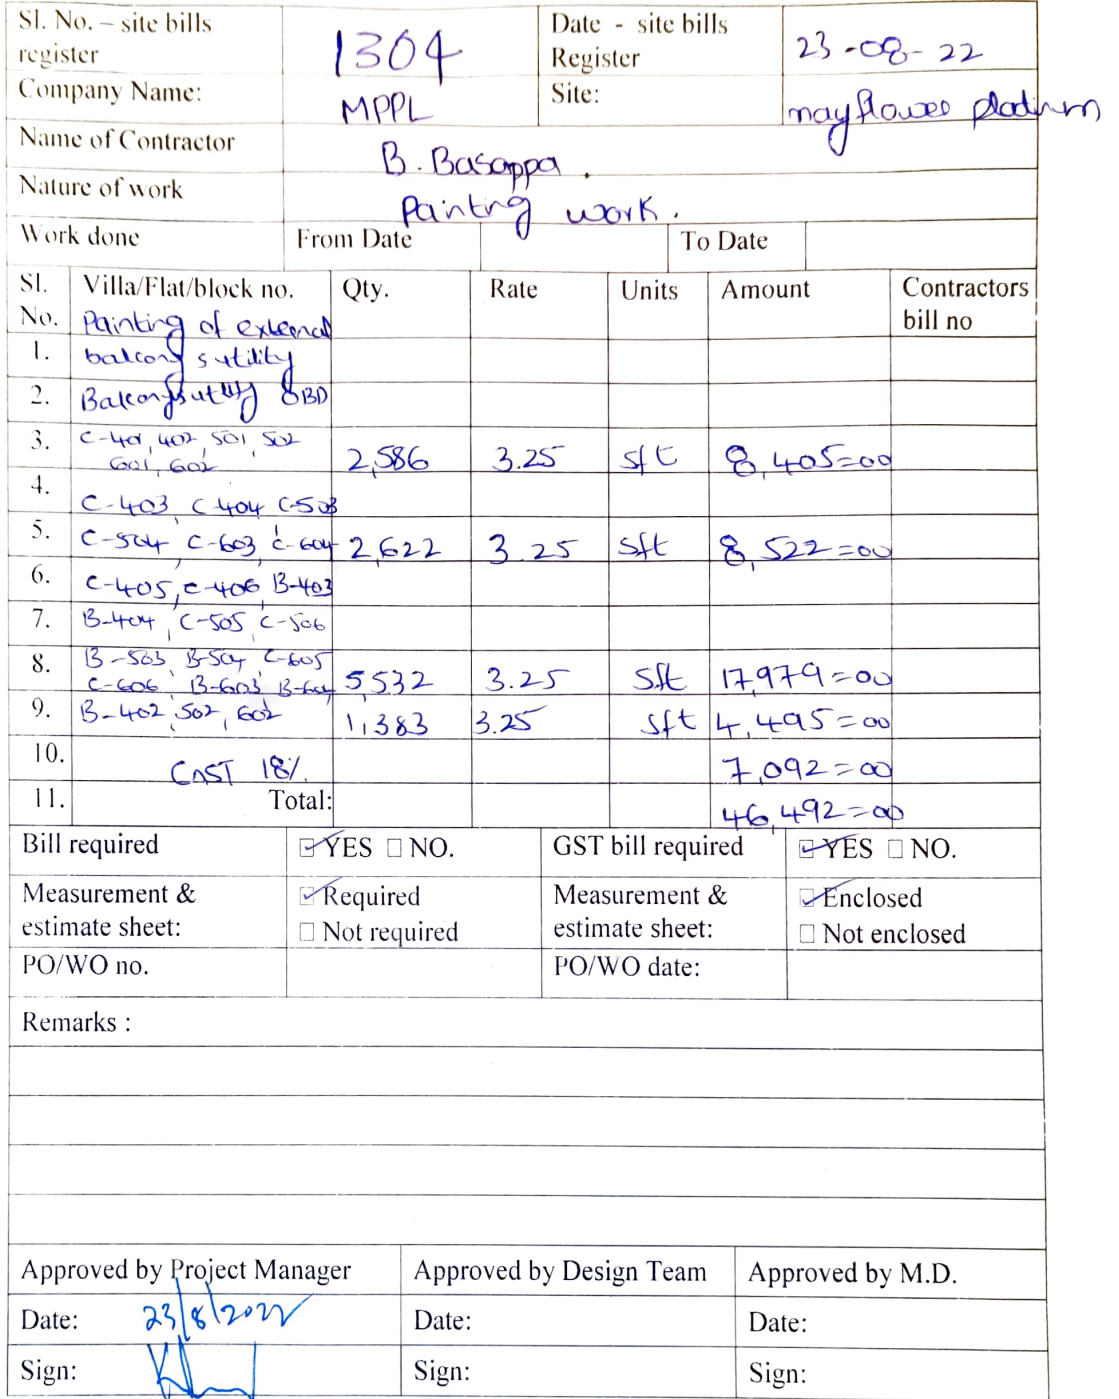 Sl. No. – site bills register 1304 Date - site bills Register 23-08-22
Company Name: MPPL Site: mayflower platinum
Name of Contractor B. Basappa.
Nature of work Painting work.
Work done From Date To Date
Sl. No. Villa/Flat/block no. Qty. Rate Units Amount Contractors bill no
Painting of external
1. balcony sutility
2. Balcony sutility OBD
3. C-401, 402, 501, 502
601, 602 2,586 3.25 sft 8,405=00
4. C-403, C-404 C-503
5. C-504 C-603, C-604 2,622 3.25 sft 8,522=00
6. C-405, C-406 B-403
7. B-404, C-505 C-506
8. B-503, B-504, C-605
C-606, B-603, B-604 5,532 3.25 Sft 17,979=00
9. B-402, 502, 602 1,383 3.25 sft 4,495=00
10. GST 18% 7,092=00
11. Total: 46,492=00
Bill required YES NO. GST bill required YES NO.
Measurement & estimate sheet: Required Not required Measurement & estimate sheet: Enclosed Not enclosed
PO/WO no. PO/WO date:
Remarks :
Approved by Project Manager Approved by Design Team Approved by M.D.
Date: 23/8/2022 Date: Date:
Sign: Sign: Sign: